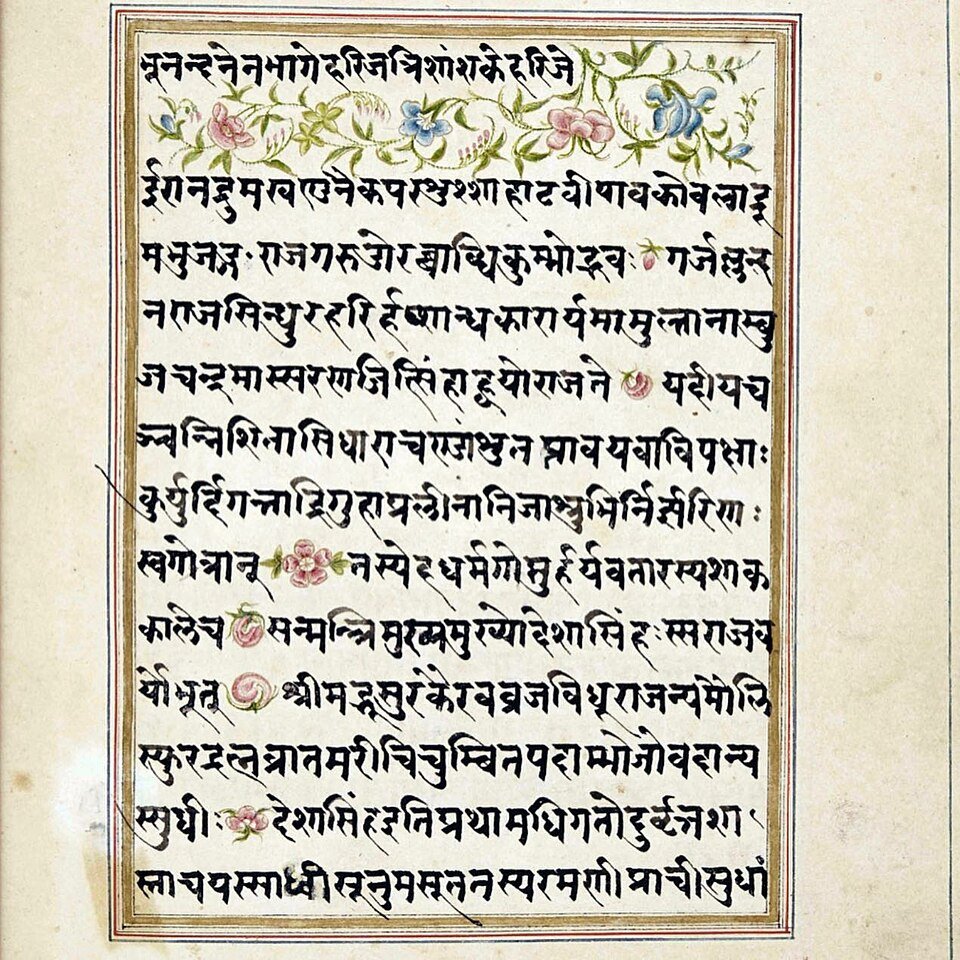 भूनन्दनेनभागेहरिजत्रिशांशकेहरिजे
ईरानद्रुमखण्डनैकपरशुश्शाहाटवीपावकोवलाद्रू
मभुजङ्गराजगरुडोरब्बाब्धिकुम्भोद्भवः गर्जल्लुन्द
नराजसिन्धुरहरिर्हूणान्धकारार्यमामुल्तानाम्बु
जचन्द्रमास्सरणजित्सिंहाह्वयोराजते यदीयच
ञ्चन्निशितासिधाराचरणंश्रुतप्रावयवाविपक्षाः
कुर्युर्दिगन्ताद्रिगुहाप्रलीनानिजाश्रुभिर्निर्झरिणाः
स्वगोत्रान् तस्येहधर्मगोप्तुर्हर्यवतारस्यशाक
कालेच सन्मन्त्रिमुख्यमुख्योदेशासिंहःस्सराजव
र्योभूत् श्रीमद्भूसुरकैरवव्रजविधूराजन्यमौलि
स्फुरद्रत्नव्रातमरीचिचुम्बितपदाम्भोजोवदान्य
स्सुधीः देशासिंहइतिप्रथामधिगतोदुर्वृत्तशा
स्ताचयस्साध्वीसूनुमसूततस्यरमणीप्राचीसुधां